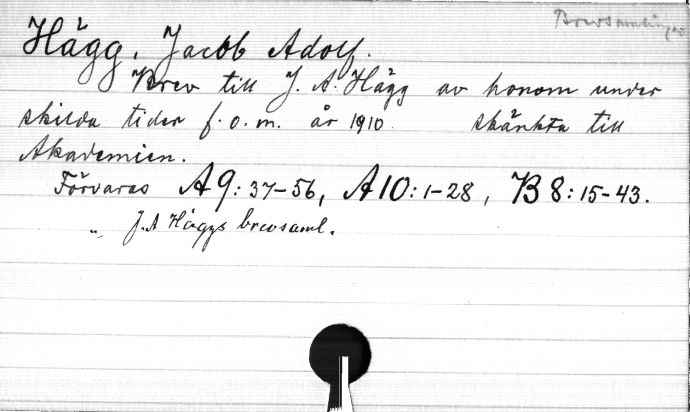 Brevsamlingar
Hägg, Jacob Adolf.
Brev till J. A. Hägg av honom under
skilda tider f.o.m. år 1910. skänkta till
Akademien.
Förvaras A9:37-56, A10:1-28, B8:15-43.
" J.A Häggs brevsaml.